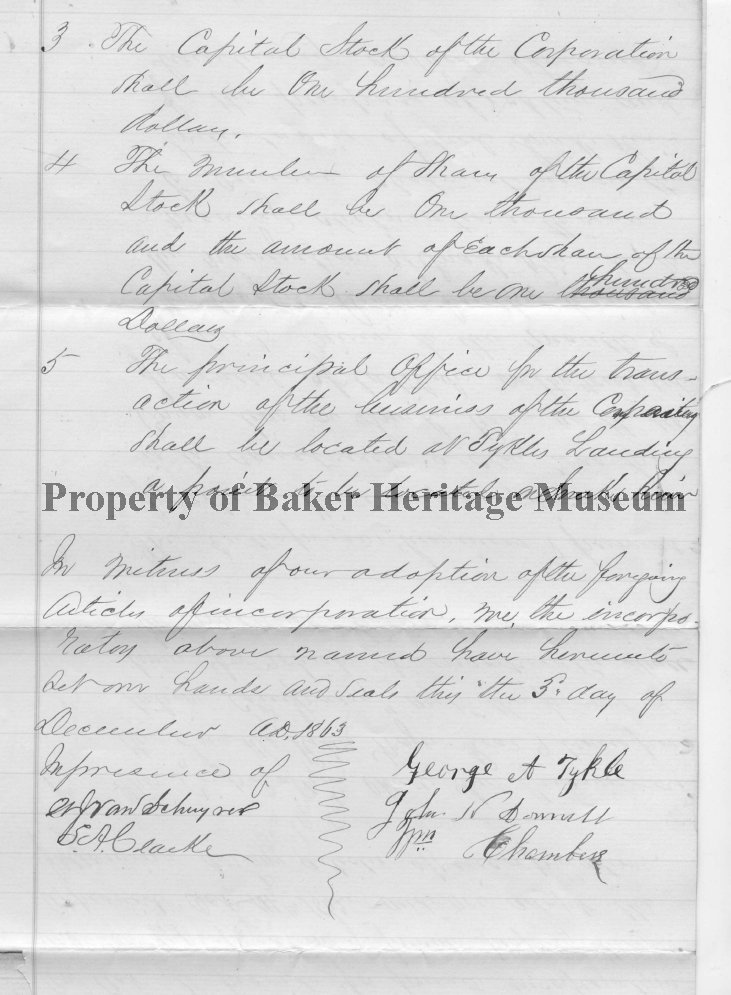 3 The Capital Stock of the Corporation
shall be One hundred thousand
dollars.
4 The number of Share of the Capital
Stock shall be One thousand
and the amount of Each share of the
Capital Stock shall be One thousand hundred
Dollars
5 The principal Office for the trans-
action of the business of the
shall be located at Tykles Landing
a point to be
Property of Baker Heritage Museum
In witness of our adoption of the foregoing
Articles of incorporation, we, the incorpo-
rators above named have hereunto
set our hands and seals this the 3d day of
December A.D. 1863
In presence of
George A Tykle
Van Schuyver
John N
E.A. Clarke
Wm Chambers